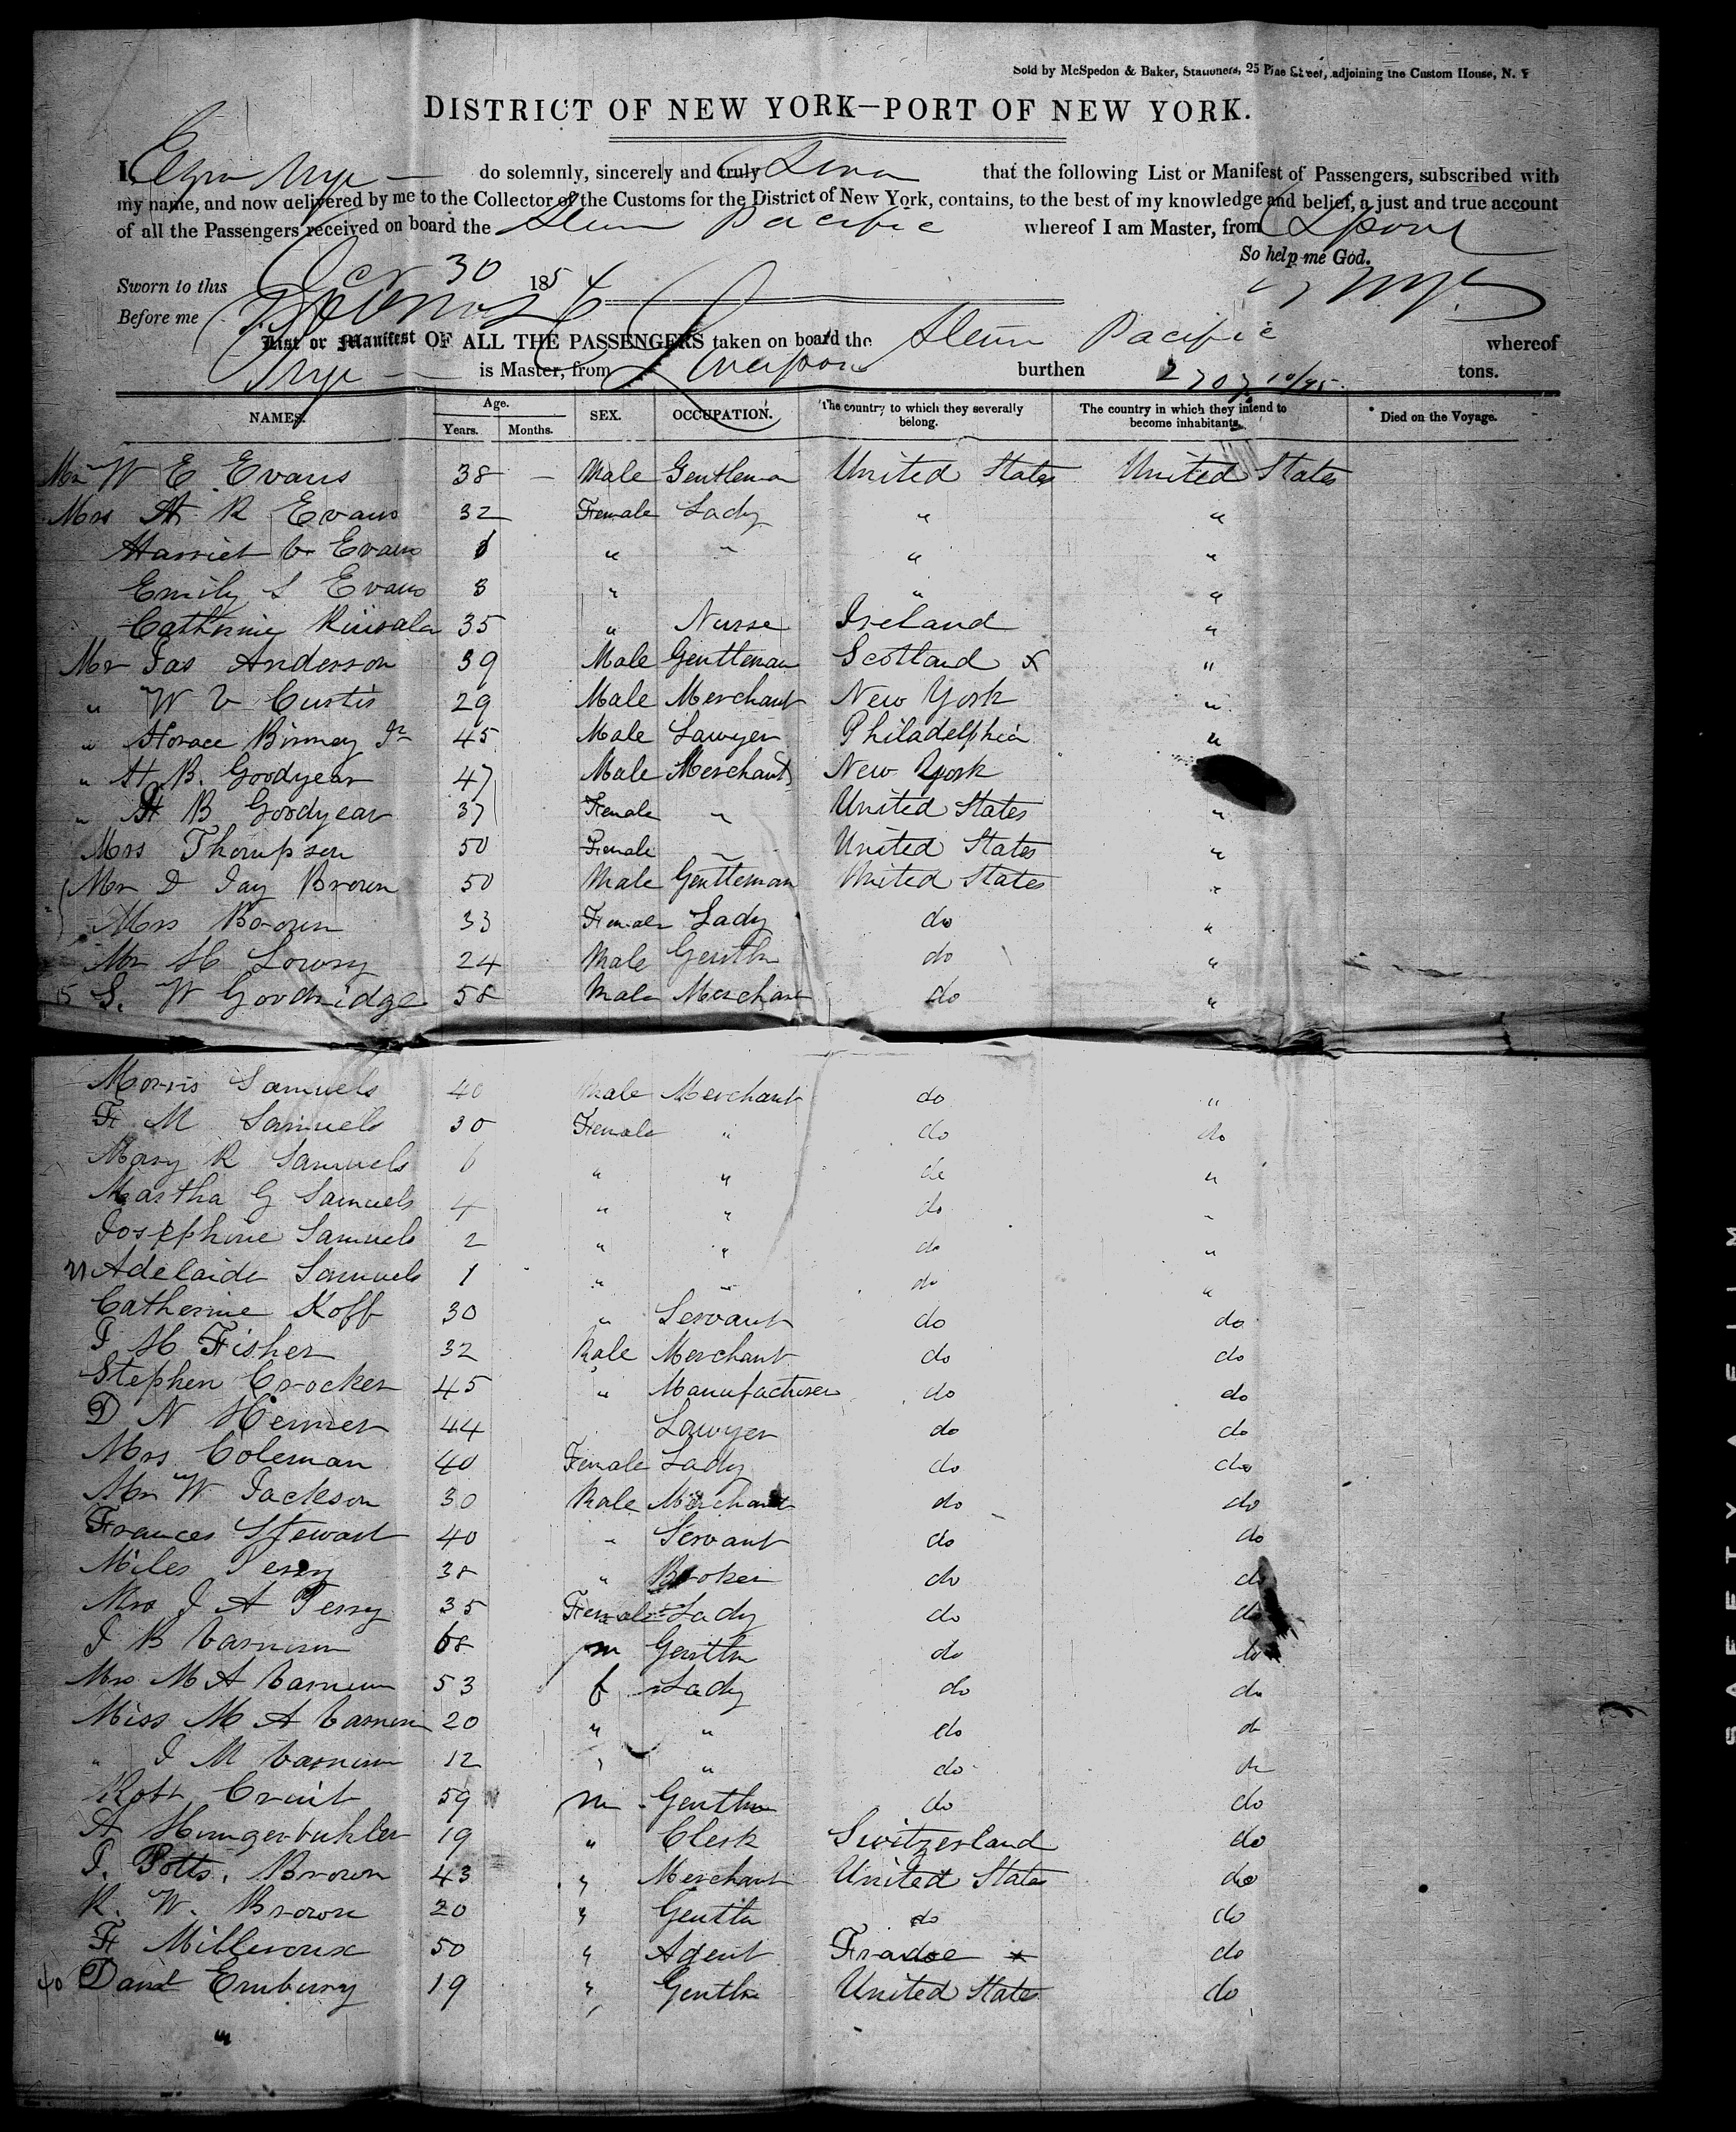 Sold by McSpedon & Baker, Stationers, 25 Pine Street, adjoining the Custom House, N. Y
DISTRICT OF NEW YORK—PORT OF NEW YORK.
I, Ezra Nye do solemnly, sincerely and truly Swear that the following List or Manifest of Passengers, subscribed with
my name, and now delivered by me to the Collector of the Customs for the District of New York, contains, to the best of my knowledge and belief, a just and true account
of all the Passengers received on board the Steam Pacific whereof I am Master, from Lpool
So help me God.
Sworn to this Oct 30 1854
Before me E Nye
List or Manifest OF ALL THE PASSENGERS taken on board the Steam Pacific whereof
Nye is Master, from Liverpool burthen 2707 10/95 tons.
NAMES. Age. Years. Months. SEX. OCCUPATION. The country to which they severally belong. The country in which they intend to become inhabitants. Died on the Voyage.
Mr W E Evans 38 — Male Gentleman United States United States
Mrs H R Evans 32 Female Lady " "
Harriet Evans " " " "
Emily S Evans 3 " " "
Catherine Kinsala 35 " Nurse Ireland "
Mr Jas Anderson 39 Male Gentleman Scotland x "
" W V Curtis 29 Male Merchant New York "
" Horace Binney Jr 45 Male Lawyer Philadelphia "
" H. B. Goodyear 47 Male Merchant New York
" H B Goodyear 37 Female " United States "
Mrs Thompson 50 Female " United States "
Mr D Jay Brown 50 Male Gentleman United States "
Mrs Brown 33 Female Lady do "
Mr H Lowry 24 Male Gentln do "
15 S. W Goodridge 58 Male Merchant do "
Morris Samuels 40 Male Merchant do "
F M Samuels 30 Female " do do
Mary R Samuels 6 " " do "
Martha G Samuels 4 " " do "
Josephine Samuels 2 " " do "
21 Adelaide Samuels 1 " " do "
Catherine Koff 30 " Servant do do
J H Fisher 32 Male Merchant do do
Stephen Crocker 45 " Manufacturer do do
D N 44 Lawyer do do
Mrs Coleman 40 Female Lady do do
Mr W Jackson 30 Male Merchant do do
Frances Stewart 40 " Servant do do
Miles Perry 38 " Broker do do
Mrs J A Perry 35 Female Lady do do
J B Varnum 68 m Gentln do do
Mrs M A Varnum 53 f Lady do do
Miss M A Varnum 20 " " do do
" J M Varnum 12 " " do do
Robt Cruit 59 m Gentln do do
A Hungerbuhler 19 " Clerk Switzerland do
J. Potts. Brown 43 " Merchant United States do
R. W. Brown 20 " Gentln do do
F Milleroux 50 " Agent France x do
40 David Embury 19 " Gentln United States do
"
SAFETY